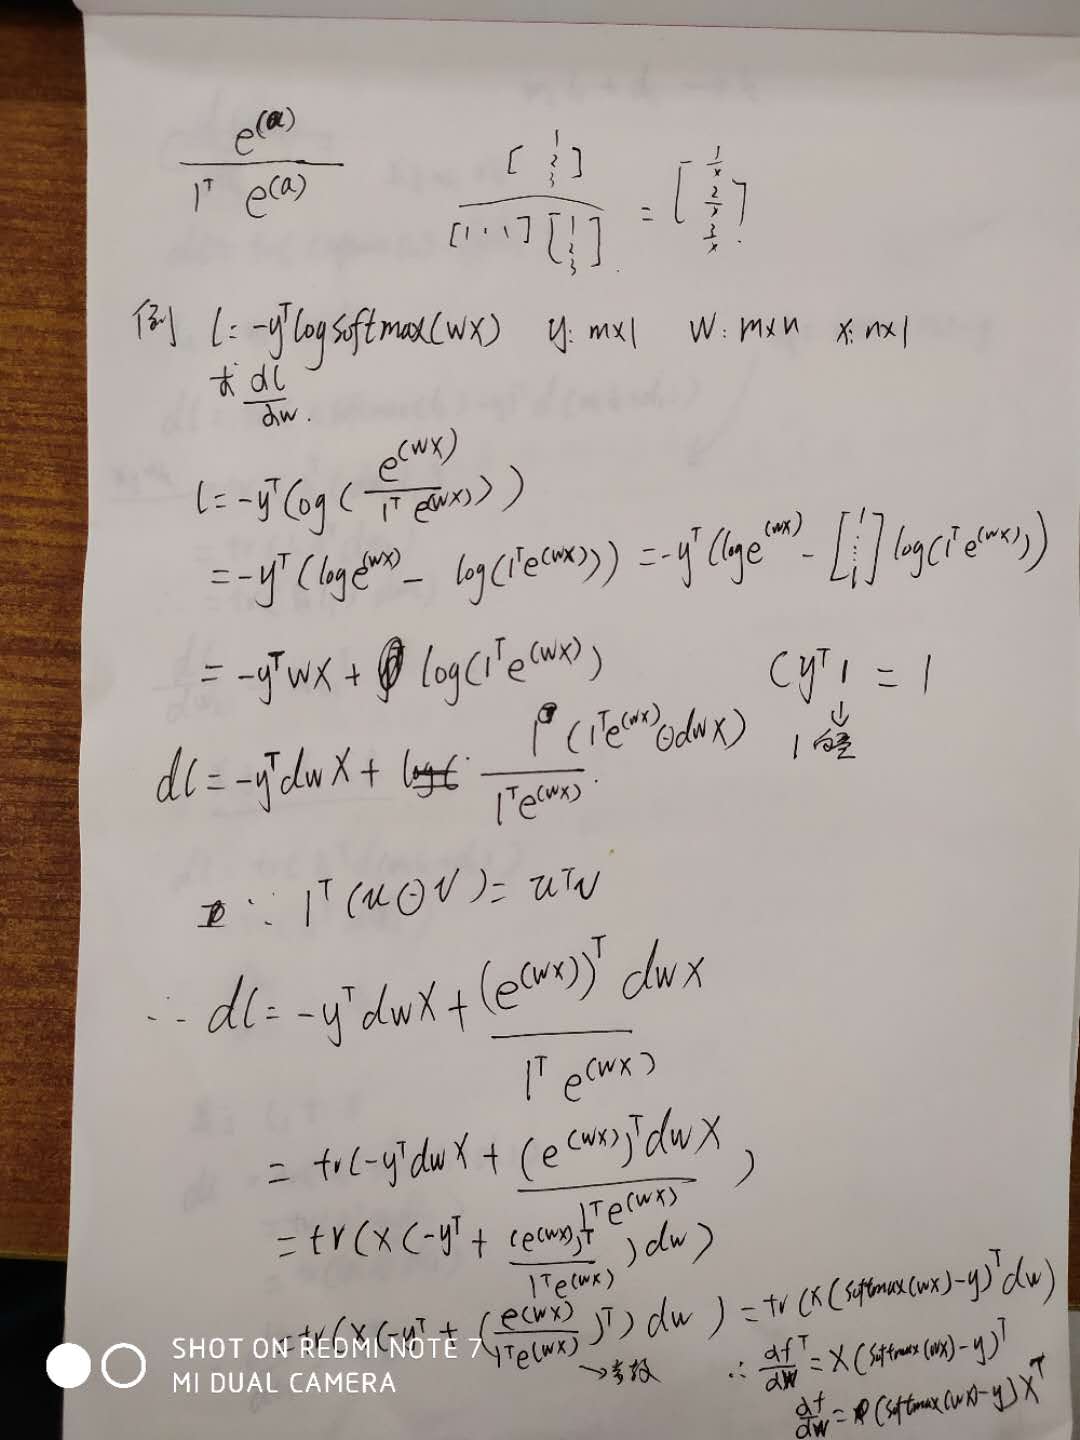 e^(a) / 1^T e^(a)    [1 2 3] / [1 · 1] [1 2 3] = [1/x 2/x 3/x]
例 l = -y^T log softmax(Wx)    y: m×1    W: m×n    x: n×1
求 dl/dw.
l = -y^T (log ( e^(wx) / 1^T e^(wx) ) )
= -y^T (log e^(wx) - log(1^T e^(wx))) = -y^T (log e^(wx) - [1 ⋮ 1] log(1^T e^(wx)))
= -y^T wx + log(1^T e^(wx))    (y^T 1 = 1
↓
1向量
dl = -y^T dw x + 1 (1^T e^(wx) ⊙ dwx) / 1^T e^(wx).
∵ 1^T (u ⊙ v) = u^T v
∴ dl = -y^T dwx + (e^(wx))^T dwx / 1^T e^(wx)
= tr(-y^T dwx + (e^(wx))^T dwx / 1^T e^(wx))
= tr(x(-y^T + (e^(wx))^T / 1^T e^(wx)) dw)
= tr(x(-y^T + (e^(wx) / 1^T e^(wx))^T) dw) = tr(x(softmax(wx)-y)^T dw)
→ 常数
∴ df/dw^T = x(softmax(wx)-y)^T
df/dw = (softmax(wx)-y) x^T
SHOT ON REDMI NOTE 7
MI DUAL CAMERA